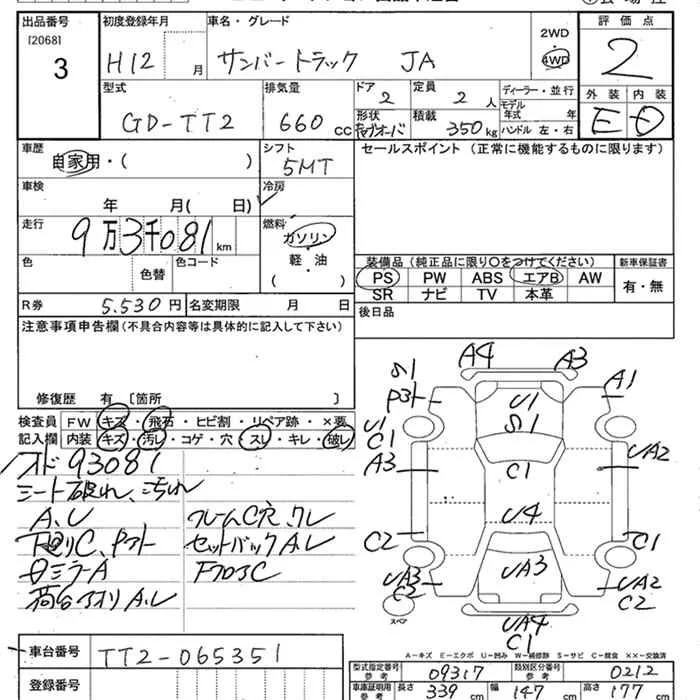 出品番号 初度登録年月 車名・グレード 2WD・4WD 評価点
[2068] 3 H12 月 サンバートラック JA 2
型式 排気量 ドア 定員 ディーラー・並行 外装 内装
GD-TT2 660 cc 2 2 人 モデル年式 年 E D
形状 積載 350 kg ハンドル 左・右
車歴 自家用・( ) シフト 5MT セールスポイント (正常に機能するものに限ります)
車検 年 月( 日) 冷房
走行 9万3千081 km 燃料 ガソリン
軽・油
( )
色 色替 色コード
装備品 (純正品に限り○をつけてください) 新車保証書
PS PW ABS エアB AW 有・無
SR ナビ TV 本革
R券 5.530 円 名変期限 月 日 後日品
注意事項申告欄 (不具合内容等は具体的に記入して下さい)
修復歴 有 [箇所 ]
検査員 FW キズ・飛石・ヒビ割・リペア跡・×要
記入欄 内装 キズ・汚レ・コゲ・穴・スレ・キレ・破レ
93081
シート破れ、汚れ
A、U フレームC穴、クレ
下廻りC、P外ト セットバックA、U
ミラーA フロアC
荷台アオリA、U
A4 A3
S1 A1
U1 U1
C1 S1
A3 UA2
C1
U4
C2 C1
UA3 UA3 UA2
C2 C2
スペア UA4
C1
A-キズ E-エクボ U-凹み W-補修跡 S-サビ C-腐食 ××-交換済
車台番号 TT2-065351
型式指定番号 参考 09317 類別区分番号 参考 0212
登録番号 車庫証明用 参考 長さ 339 cm 幅 147 cm 高さ 177 cm